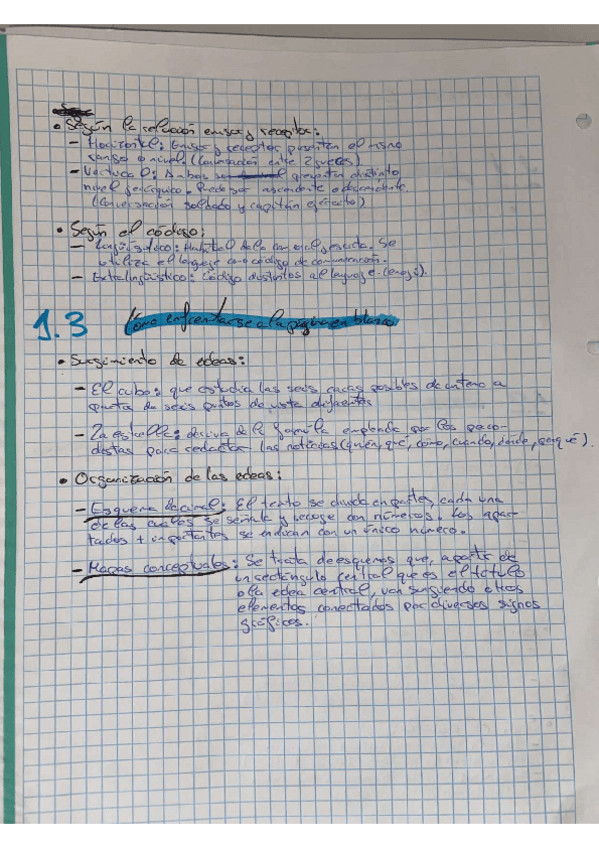 • Según la relación emisor y receptor:
– Horizontal: Emisor y receptor presentan el mismo
rango o nivel. (Conversación entre 2 jueces)
– Vertical: Ambos presentan distinto
nivel jerárquico. Puede ser ascendente o descendente.
(Conversación soldado y capitán ejército)
• Según el código:
– Lingüístico: Habitual de la com oral y escrita. Se
utiliza el lenguaje como código de comunicación.
– Extralingüístico: Código distintos al lenguaje. (emoji).
1.3 Cómo enfrentarse a la página en blanco
• Surgimiento de edeas:
– El cubo: que estudia las seis caras posibles de un tema a
partir de seis puntos de vista diferentes
– La estrella: deriva de la fórmula empleada por los perio-
distas para redactar las noticias (quién, qué, cómo, cuándo, dónde, porqué).
• Organización de las edeas:
– Esquema decimal: El texto se divide en partes, cada una
de las cuales se señala y recoge con números. Los apar-
tados + importantes se indican con un único número.
– Mapas conceptuales: Se trata de esquemas que, a partir de
un rectángulo central que es el título
o la edea central, van surgiendo otros
elementos conectados por diversos signos
gráficos.